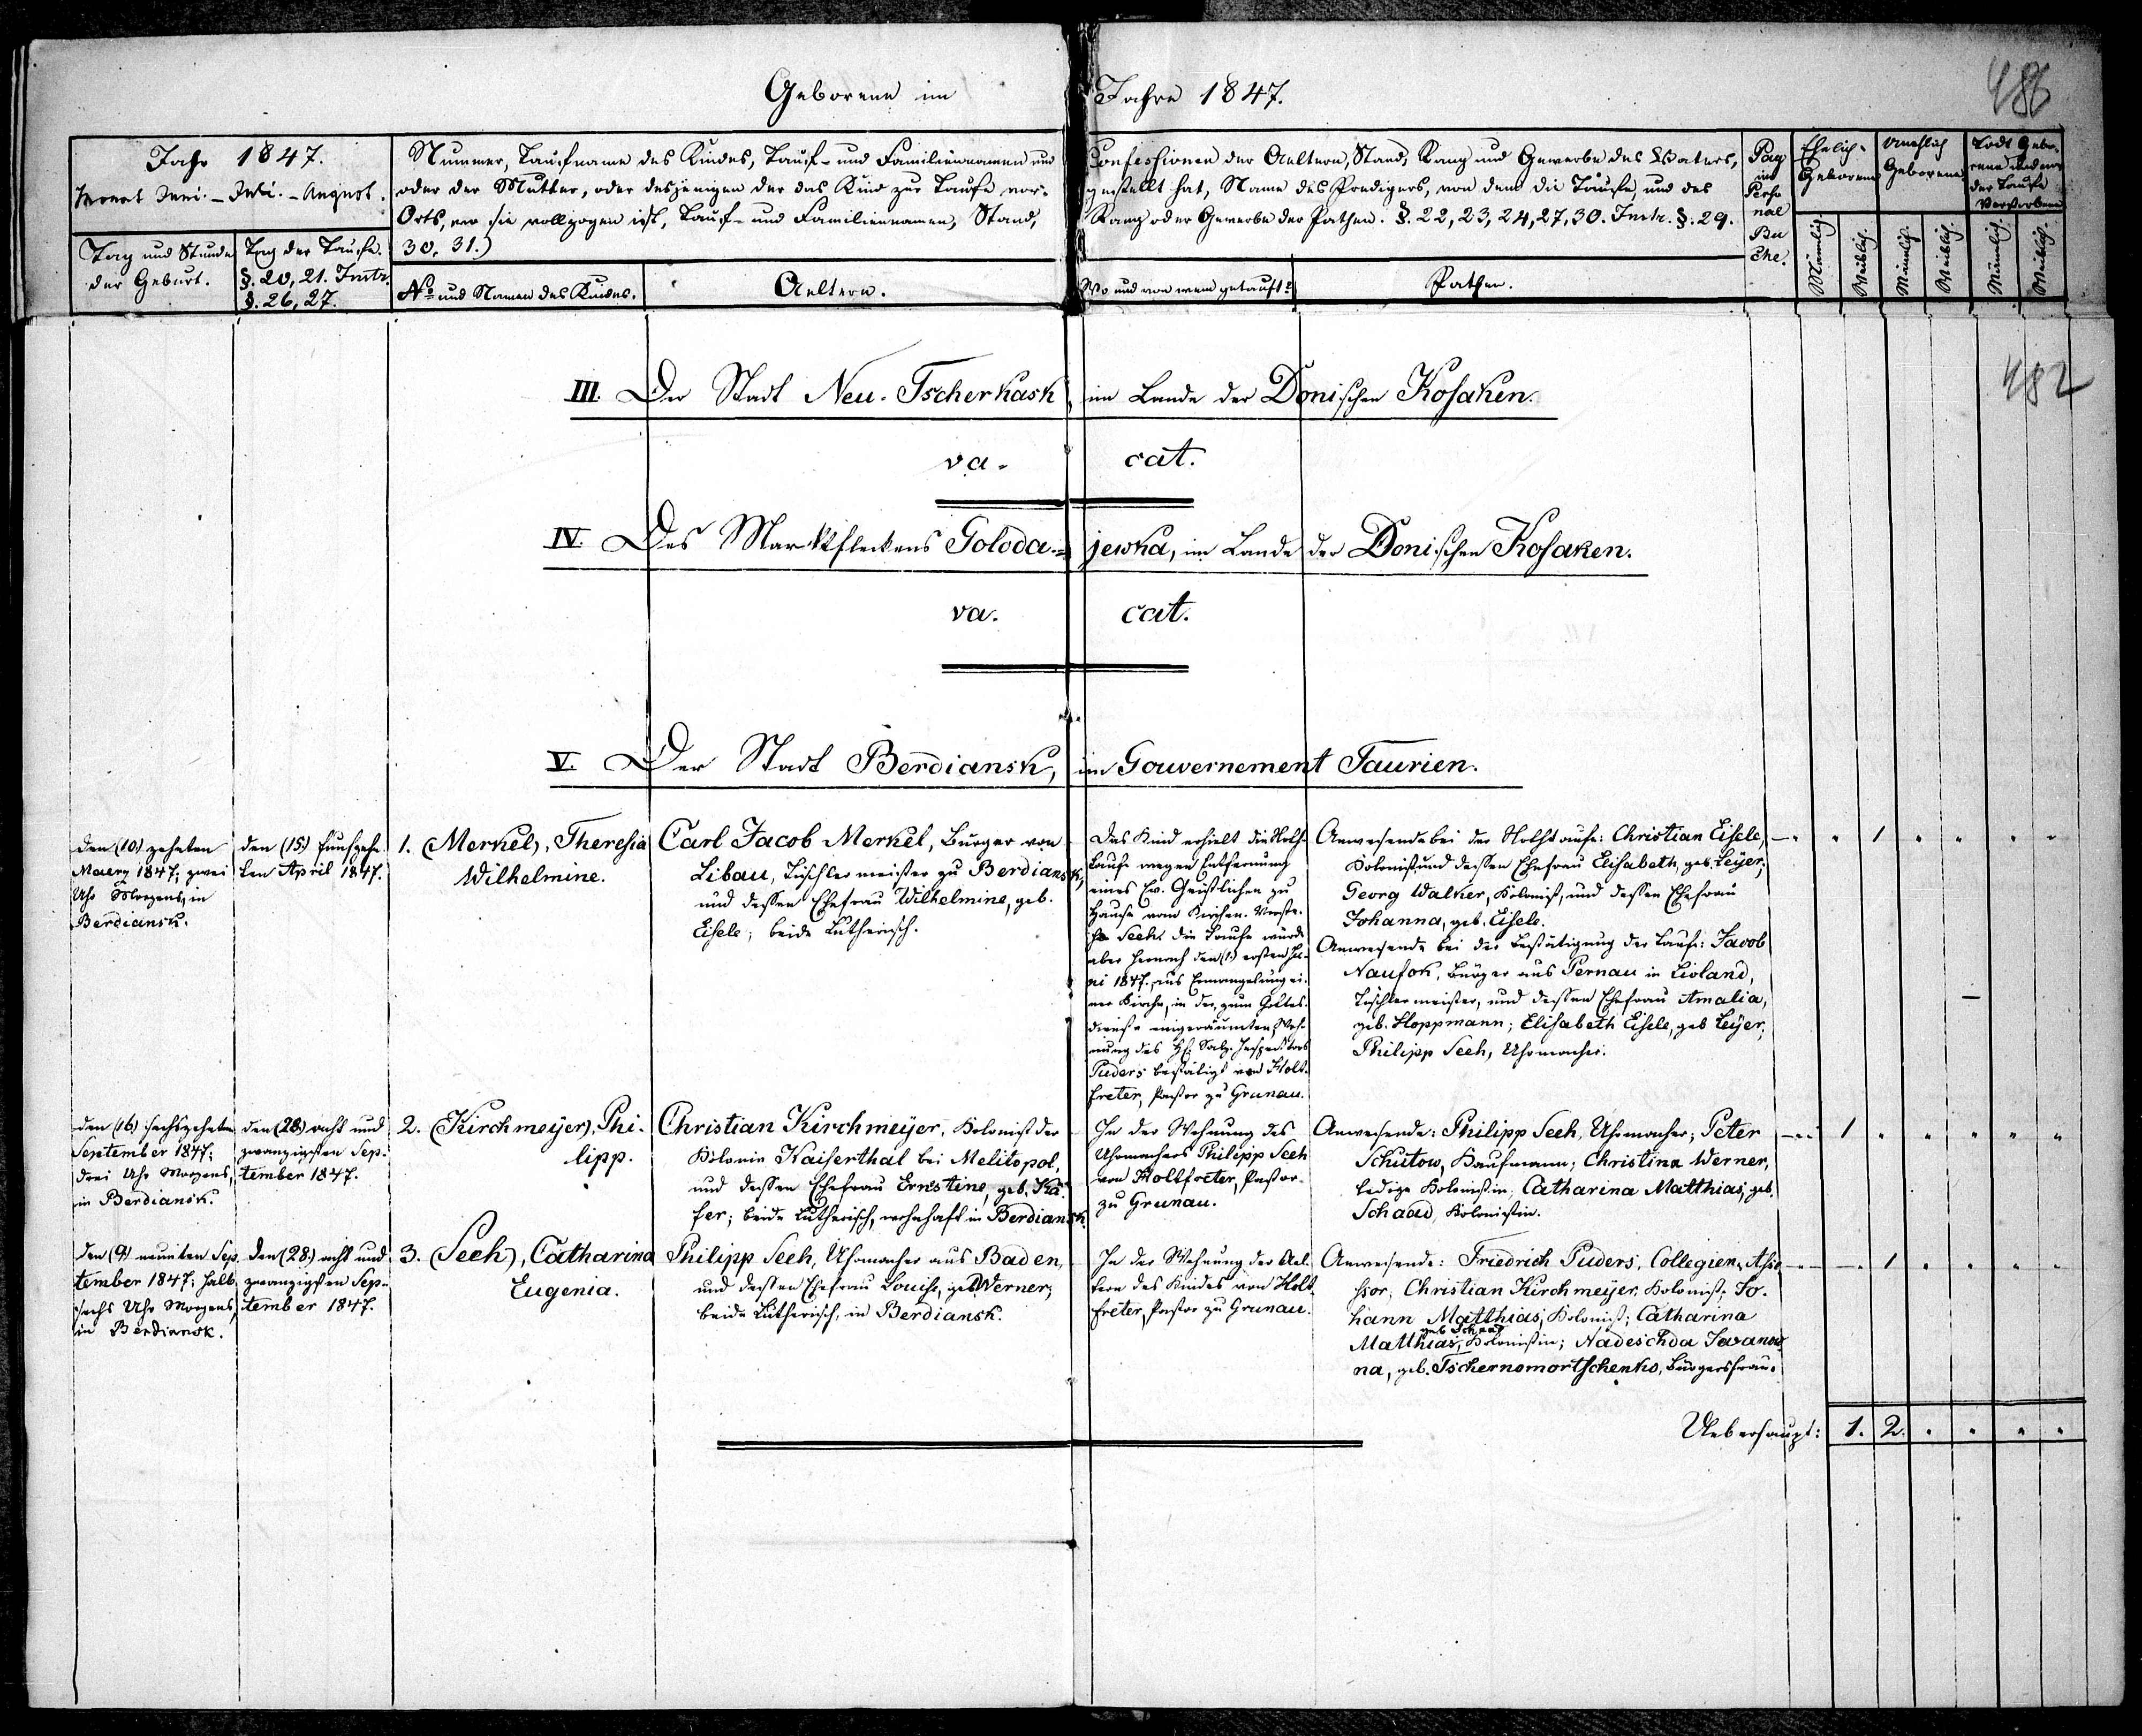 Geborene im Jahre 1847.
486
Jahr 1847.
Monat Juni. – Juli. – August.
Tag und Stunde
der Geburt.
Tag der Taufe.
§. 20, 21. Instr.
§. 26, 27.
Nummer, Taufname des Kindes, Tauf- und Familiennamen und
oder der Mutter, oder desjenigen der das Kind zur Taufe vor-
Orts, wo sie vollzogen ist, Tauf- und Familiennamen, Stand,
30, 31.)
No und Namen des Kindes.
Aeltern.
Confessionen der Aeltern, Stand, Rang und Gewerbe des Vaters,
gestellt hat, Name des Predigers, von dem die Taufe, und des
Rang oder Gewerbe der Pathen. §. 22, 23, 24, 27, 30. Instr. §. 29.
Wo und von wem getauft?
Pathen.
Pag
im
Perso
nal
Bu
che.
Ehelich
Geborene
Unehlich
Geborene
Todt Gebo-
rene und vor
der Taufe
Verstorbene
Männlich.
Weiblich.
Männlich.
Weiblich.
Männlich.
Weiblich.
482
III. Der Stadt Neu-Tscherkask, im Lande der Donischen Kosaken.
va- cat.
IV. Des Marktfleckens Goloda- jewka, im Lande der Donischen Kosaken.
va. cat.
V. Der Stadt Berdiansk, im Gouvernement Taurien.
den (10.) zehnten
Maerz 1847; zwei
Uhr Morgens, in
Berdiansk.
den (15.) funfzehn
ten April 1847.
1. (Merkel), Theresia
Wilhelmine.
Carl Jacob Merkel, Bürger von
Libau, Tischlermeister zu Berdiansk,
und dessen Ehefrau Wilhelmine, geb.
Eisele; beide Lutherisch.
Das Kind erhielt die Noth-
taufe wegen Entfernung
eines Ev. Geistlichen zu
Hause vom Kirchen-Vorste-
her Seeh. die Taufe wurde
aber hernach den (1.) ersten Ju-
ni 1847. aus Ermangelung ei-
ner Kirche, in der, zum Gottes-
dienste eingeräumten, Woh-
nung des H. Salz-Inspectors
Puders bestätigt von Holt-
freter, Pastor zu Grunau.
Anwesende bei der Nothtaufe: Christian Eisele,
Kolonist und dessen Ehefrau Elisabeth, geb. Leyer;
Georg Walker, Kolonist, und dessen Ehefrau
Johanna, geb. Eisele.
Anwesende bei der Bestätigung der Taufe: Jacob
Naufok, Bürger aus Pernau in Livland,
Tischlermeister, und dessen Ehefrau Amalia,
geb. Hoppmann; Elisabeth Eisele, geb Leyer;
Philipp Seeh, Uhrmacher.
1
den (16.) sechszehnten
September 1847;
drei Uhr Morgens,
in Berdiansk.
den (28.) acht und
zwanzigsten Sep-
tember 1847.
2. (Kirchmeyer), Phi-
lipp.
Christian Kirchmeyer, Kolonist der
Kolonie Kaiserthal bei Melitopol,
und dessen Ehefrau Ernstine, geb. Kä-
fer; beide Lutherisch, wohnhaft in Berdiansk.
In der Wohnung des
Uhrmachers Philipp Seeh
von Holtfreter, Pastor
zu Grunau.
Anwesende: Philipp Seeh, Uhrmacher; Peter
Schutow, Kaufmann; Christina Werner,
ledige Kolonistin; Catharina Matthias, geb.
Schaad, Kolonistin.
1
den (9.) neunten Sep-
tember 1847; halb
sechs Uhr Morgens,
in Berdiansk.
den (28.) acht und
zwanzigsten Sep-
tember 1847.
3. (Seeh), Catharina
Eugenia.
Philipp Seeh, Uhrmacher aus Baden,
und dessen Ehefrau Louise, geb. Werner;
beide Lutherisch, in Berdiansk.
In der Wohnung der Ael-
tern des Kindes von Holt-
freter, Pastor zu Grunau.
Anwesende: Friedrich Puders, Collegien-Asse-
ssor; Christian Kirchmeyer, Kolonist; Jo-
hann Matthias, Kolonist; Catharina
geb Schaad
Matthias, Kolonistin; Nadeschda Iwanow
na, geb. Tschernomortschenko, Bürgersfrau.
1
Ueberhaupt: 1. 2.